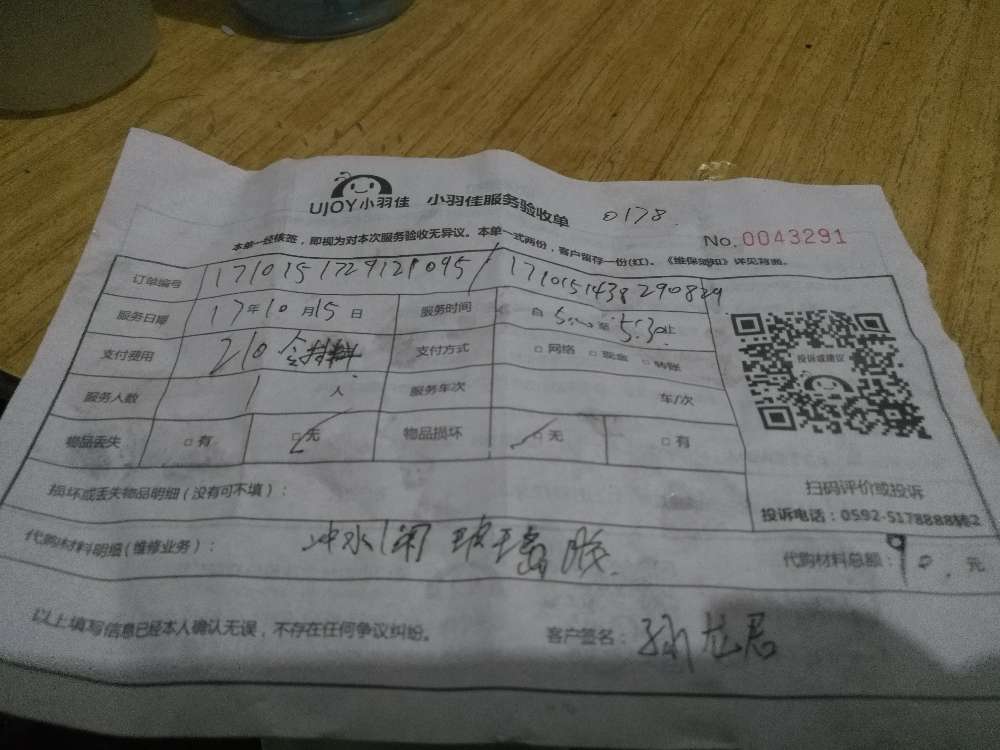 UJOY小羽佳 小羽佳服务验收单 0178
No. 0043291
本单一经核签，即视为对本次服务验收无异议。本单一式两份，客户留存一份(红)。《维保须知》详见背面。
订单编号 171015172912 1095 / 171015143829 0829
服务日期 17年10月15日 服务时间 自5:00至5:30止
支付费用 210 含材料 支付方式 □ 网络 □ 现金 □ 转账
服务人数 1 人 服务车次 车/次
物品丢失 □ 有 □ 无 物品损坏 □ 无 □ 有
投诉或建议
损坏或丢失物品明细（没有可不填）：
扫码评价或投诉
投诉电话：0592-5178888转2
代购材料明细（维修业务）： 冲水阀 玻璃胶 代购材料总额：90. 元
以上填写信息已经本人确认无误，不存在任何争议纠纷。 客户签名：孙龙君